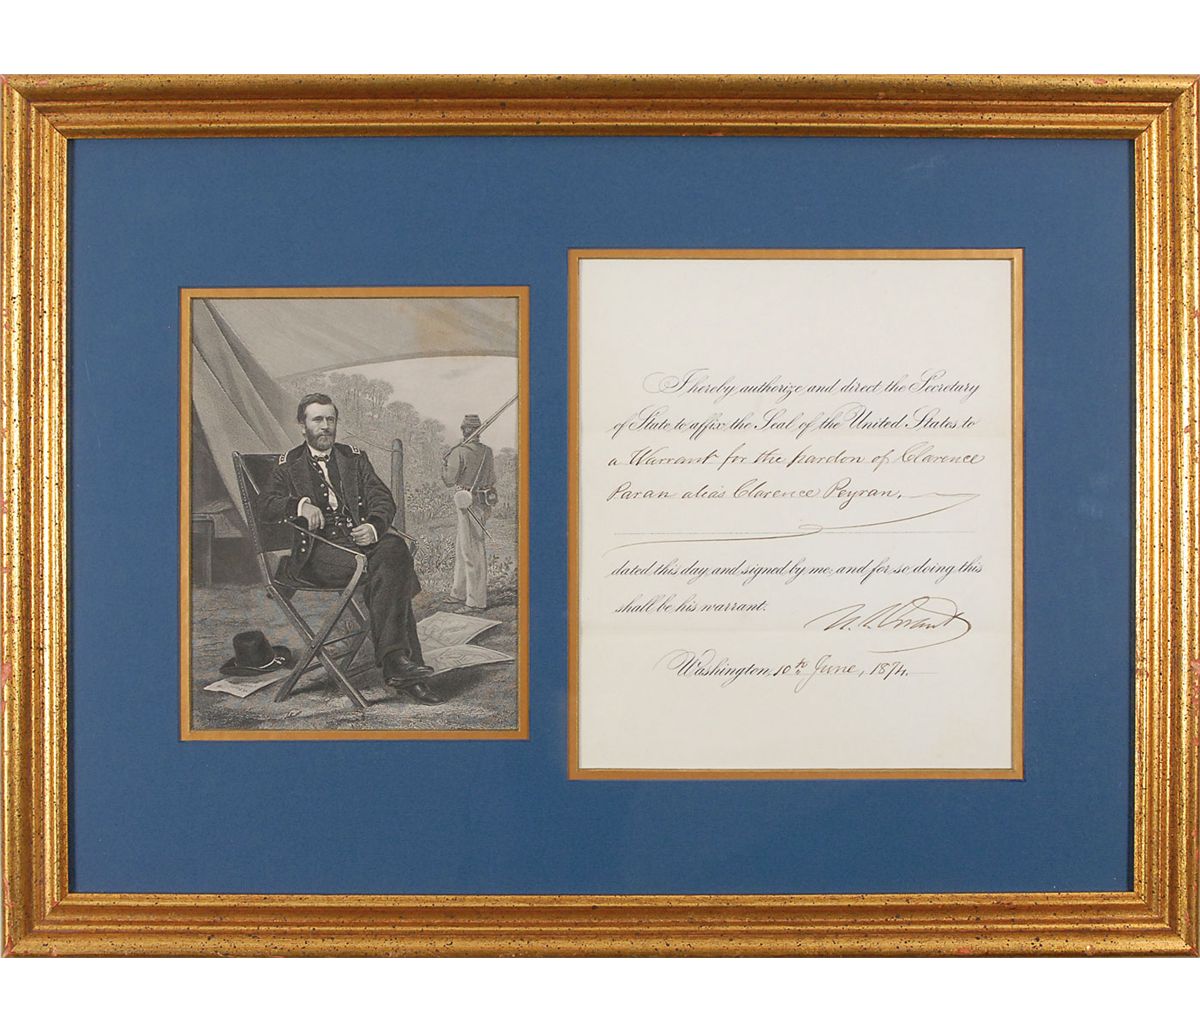 I hereby authorize and direct the Secretary
of State to affix the Seal of the United States to
a Warrant for the pardon of Clarence
Paran alias Clarence Peyran.
dated this day, and signed by me; and for so doing this
shall be his warrant.
U. S. Grant
Washington, 10th June, 1874.